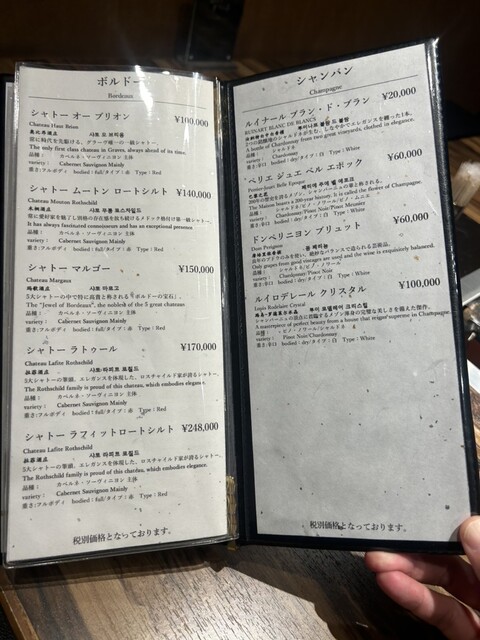 ボルドー
Bordeaux
シャトー オー ブリオン ¥100,000
Chateau Haut Brion
奥比昂酒庄 샤또 오 브리옹
常に時代を先駆ける、グラーヴ唯一の一級シャトー。
The only first class chateau in Graves, always ahead of its time.
品種: カベルネ・ソーヴィニヨン 主体
variety: Cabernet Sauvignon Mainly
重さ:フルボディ bodied : full/タイプ : 赤 Type : Red
シャトー ムートン ロートシルト ¥140,000
Chateau Mouton Rothschild
木桐酒庄 샤또 무똥 로스차일드
It has always fascinated connoisseurs and has an exceptional presence.
品種: カベルネ・ソーヴィニヨン 主体
variety: Cabernet Sauvignon Mainly
重さ:フルボディ bodied : full/タイプ : 赤 Type : Red
シャトー マルゴー ¥150,000
Chateau Margaux
玛歌酒庄 샤또 마르고
5大シャトーの中で特に高貴と称される「ボルドーの宝石」。
The "Jewel of Bordeaux", the noblest of the 5 great chateaus
品種: カベルネ・ソーヴィニヨン 主体
variety: Cabernet Sauvignon Mainly
重さ:フルボディ bodied : full/タイプ : 赤 Type : Red
シャトー ラトゥール ¥170,000
Chateau Lafite Rothschild
5大シャトーの筆頭、エレガンスを体現した、ロスチャイルド家が誇るシャトー。
The Rothschild family is proud of this chateau, which embodies elegance.
品種: カベルネ・ソーヴィニヨン 主体
variety: Cabernet Sauvignon Mainly
重さ:フルボディ bodied : full/タイプ : 赤 Type : Red
シャトー ラフィットロートシルト ¥248,000
Chateau Lafite Rothschild
5大シャトーの筆頭、エレガンスを体現した、ロスチャイルド家が誇るシャトー。
The Rothschild family is proud of this chateau, which embodies elegance.
品種: カベルネ・ソーヴィニヨン 主体
variety: Cabernet Sauvignon Mainly
重さ:フルボディ bodied : full/タイプ : 赤 Type : Red
税別価格となっております。
シャンパン
Champagne
ルイナール ブラン・ド・ブラン ¥20,000
RUINART BLANC DE BLANCS
A bottle of Chardonnay from two great vineyards, clothed in elegance.
品種: シャルドネ
variety: Chardonnay
重さ:辛口 bodied : dry/タイプ : 白 Type : White
ペリエ ジュエ ベル エポック ¥60,000
Perrier-Jouet Belle Epoque
The Maison boasts a 200-year history. It is called the flower of Champagne.
variety: Chardonnay/Pinot Noir/Pinot Meunier
重さ:辛口 bodied : dry/タイプ : 白 Type : White
ドンペリニヨン ブリュット ¥60,000
Dom Perignon
Only grapes from good vintages are used and the wine is exquisitely balanced.
品種: シャルドネ/ピノ・ノワール
variety: Chardonnay/Pinot Noir
重さ:辛口 bodied : dry/タイプ : 白 Type : White
ルイロデレール クリスタル ¥100,000
Louis Roederer Crystal
A masterpiece of perfect beauty from a house that reigns supreme in Champagne.
品種: ピノ・ノワール/シャルドネ
variety: Pinot Noir/Chardonnay
重さ:辛口 bodied : dry/タイプ : 白 Type : White
税別価格となっております。